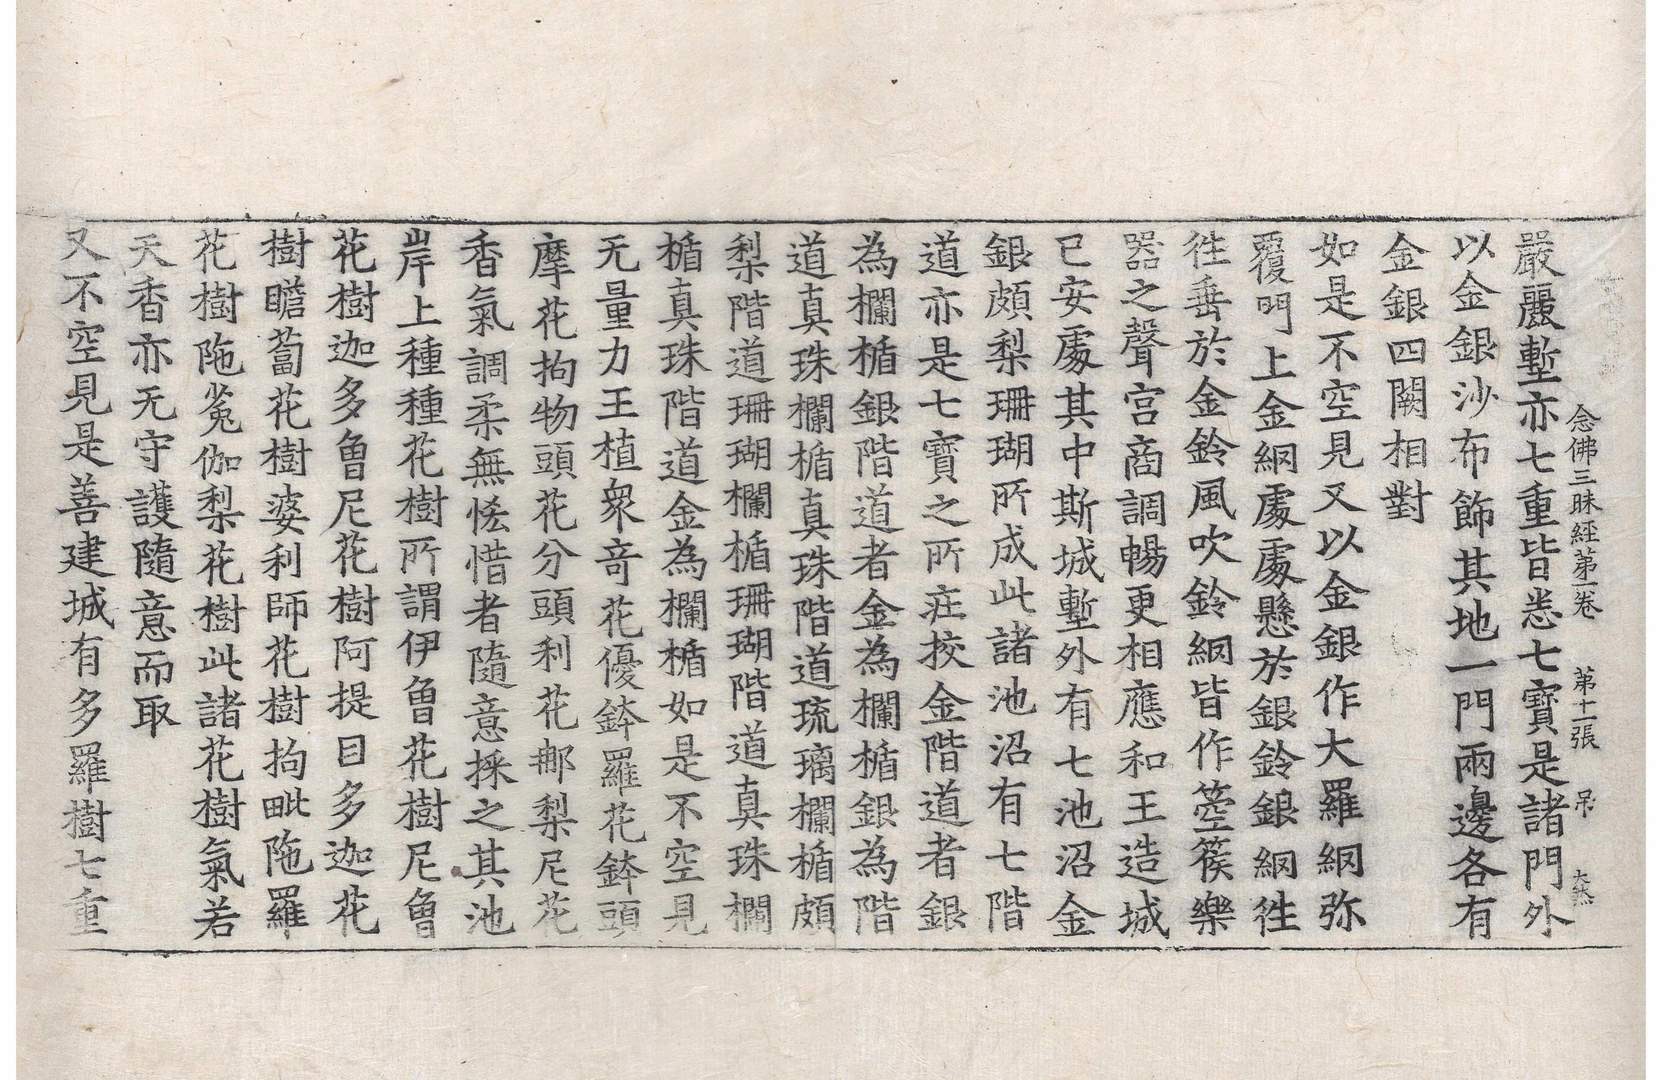 嚴麗塹亦七重皆悉七寶是諸門外
念佛三昧經第一卷 第十一張 弔 大悲
以金銀沙布飾其地一門兩邊各有
金銀四闕相對
如是不空見又以金銀作大羅網弥
覆門上金網處處懸於銀鈴銀網徃
徃垂於金鈴風吹鈴網皆作箜篌樂
器之聲宮商調暢更相應和王造城
已安處其中斯城塹外有七池沼金
銀頗梨珊瑚所成此諸池沼有七階
道亦是七寶之所庄挍金階道者銀
為欄楯銀階道者金為欄楯銀為階
道真珠欄楯真珠階道琉璃欄楯頗
梨階道珊瑚欄楯珊瑚階道真珠欄
楯真珠階道金為欄楯如是不空見
无量力王植衆竒花優鉢羅花鉢頭
摩花拘物頭花分頭利花那梨尼花
香氣調柔無悋惜者隨意採之其池
岸上種種花樹所謂伊魯花樹尼魯
花樹迦多魯尼花樹阿提目多迦花
樹瞻蔔花樹婆利師花樹拘毗陁羅
花樹陁㝹伽梨花樹此諸花樹氣若
天香亦无守護隨意而取
又不空見是善建城有多羅樹七重